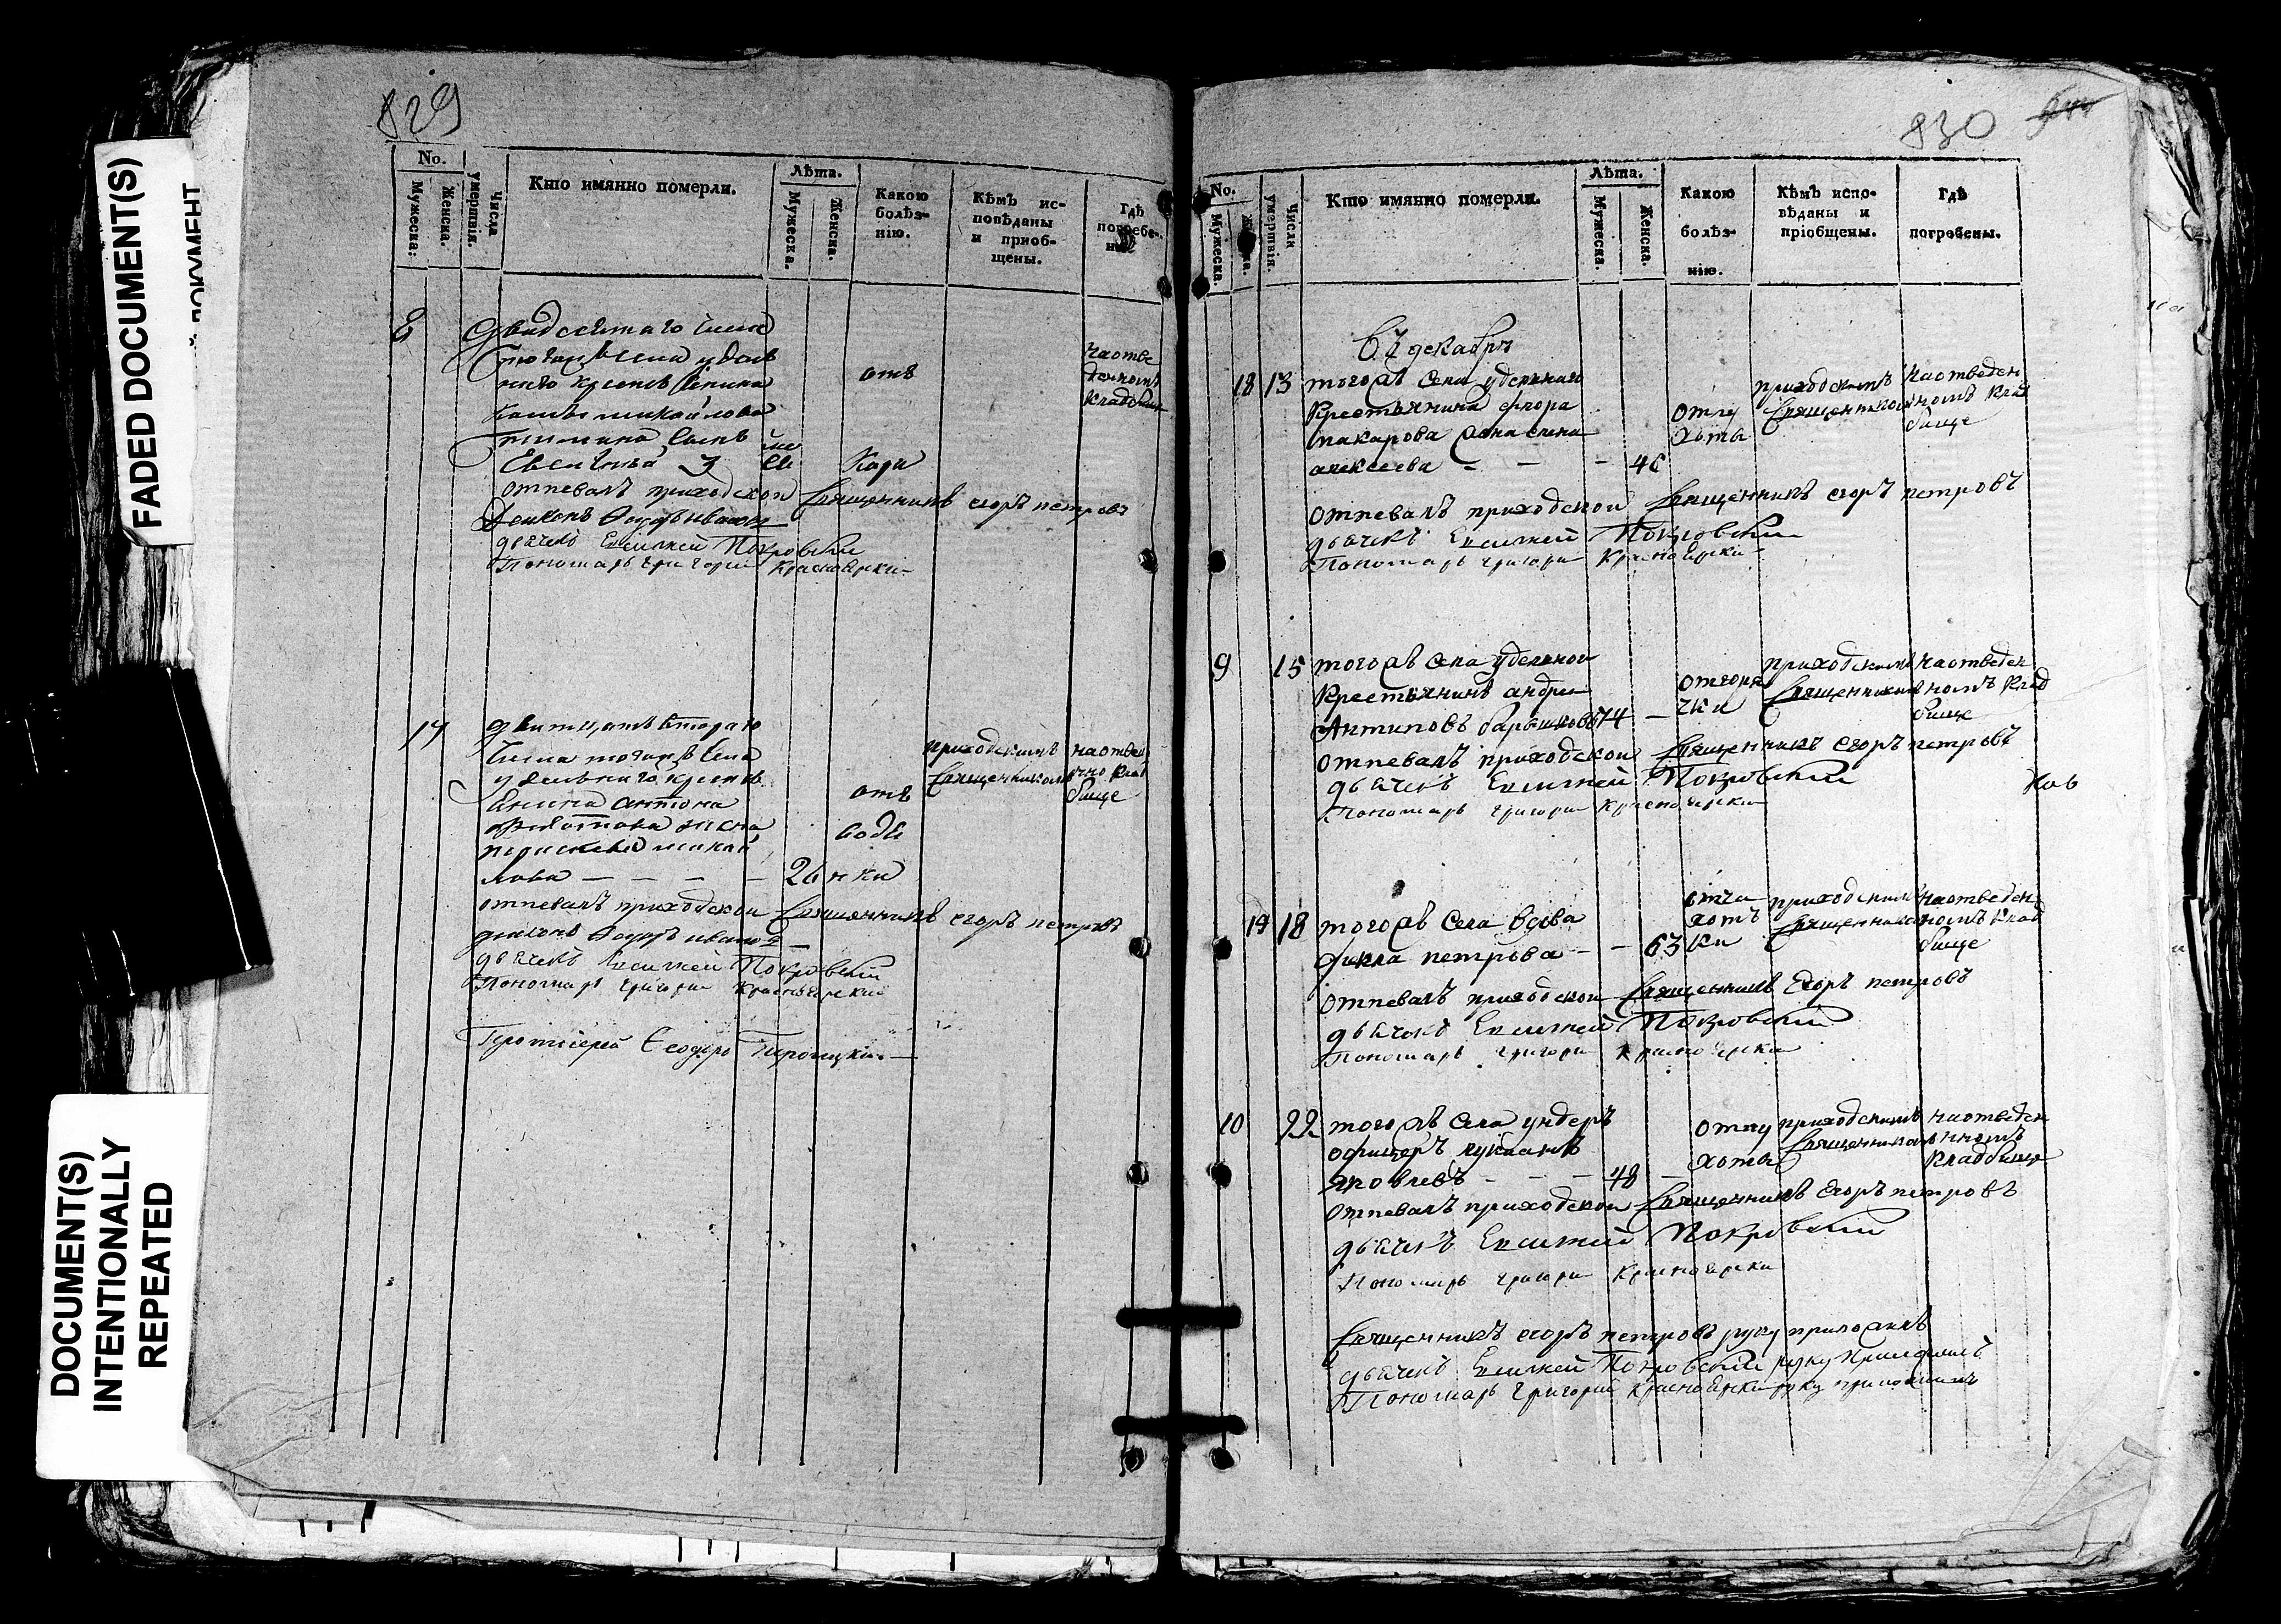 829
No.
Мужеска:
Женска.
Числа умертвія.
Кто имянно померли.
Лѣта.
Мужеска.
Женска.
Какою болѣз-
нію.
Кѣмъ ис-
повѣданы
и приоб-
щены.
Гдѣ
погребе-
ны
8
двадсятаго числа
тогожъ села удель
наго
отъ
наотве
денномъ
кладбище
сынъ
3
Кори
отпевалъ приходской священникъ егоръ петровъ
Дьячекъ Покровскій
Пономарь Григорий Красноярски
17
двитцать втораго
числа тогожъ села
удельнаго крестья
нина антона
жена
лова — — — — 26
отъ
водя
нки
приходскимъ
священникомъ
наотведе
нно клад
бище
отпевалъ приходской священникъ егоръ петровъ
диаконъ Федоръ ивановъ
дьячекъ Покровскій
Пономарь Григори Красноярский
Протоіерей Феодоръ Троицки
830
No.
Мужеска
Числа умертвія.
Кто имянно померли.
Лѣта.
Мужеска.
Женска.
Какою
болѣз-
нію.
Кѣмъ испо-
вѣданы и
пріобщены.
Гдѣ
погребены.
Въ декабрѣ
18 13 тогожъ села удельнаго
крестьянина флора
макарова жена елена
алексеева — — — 46
отпу
хоты
приходскимъ
священникомъ
наотведен
номъ клад
бище
отпевалъ приходской священникъ егоръ петровъ
дьячекъ Покровский
Пономарь григори Красноярски
9 15 тогожъ села уделеной
крестьянинъ андреи
Антиповъ барышковъ 74 —
отгоря
чки
приходскимъ
священникомъ
наотведен
номъ клад
бище
отпевалъ приходской священникъ егоръ петровъ
дьячекъ Покровский
Пономарь григори Красноярски
19 18 тогожъ села вдова
фекла петрова — — 63
отча
хотъ
ки
приходскимъ
священникомъ
наотведен
номъ клад
бище
отпевалъ приходской священникъ Егоръ петровъ
дьячекъ Покровский
Пономарь григори Красноярски
10 22 тогожъ села ундеръ
офицеръ лукианъ
яковлевъ — — — 48 —
отпу
хоты
приходскимъ
священникомъ
наотведен
номъ
кладбище
отпевалъ приходской священникъ Егоръ петровъ
дьячекъ Покровский
Пономарь григори Красноярски
Священникъ егоръ петровъ руку приложилъ
дьячекъ Покровский руку приложилъ
Пономарь Григорий Красноярски руку приложилъ
FADED DOCUMENT(S)
DOCUMENT(S)
INTENTIONALLY
REPEATED